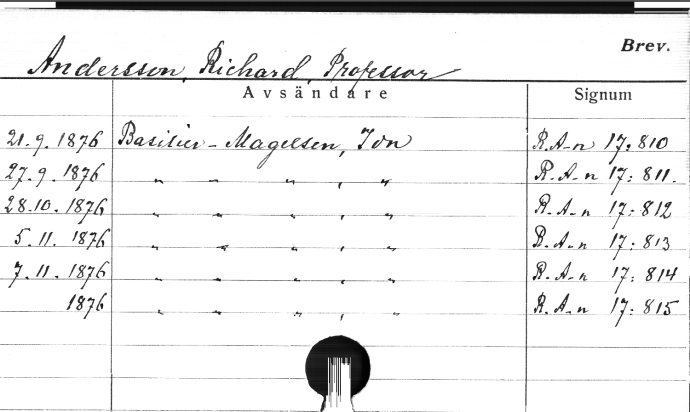 Brev.
Andersson, Richard, Professor
Avsändare Signum
21.9.1876 Basilier-Magelsen, Ida R.A-n 17:810
27.9.1876 " " " , " R.A-n 17:811.
28.10.1876 " " " , " R.A-n 17:812
5.11.1876 " " " , " R.A-n 17:813
7.11.1876 " " " , " R.A-n 17:814
1876 " " " , " R.A-n 17:815